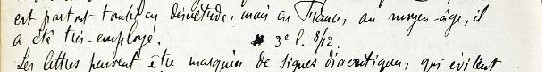 est partout tombé en désuétude, mais en France, au moyen-âge, il
a été très-employé. 3e P. 8/12.
Les lettres peuvent être marquées de signes diacritiques, qui évitent